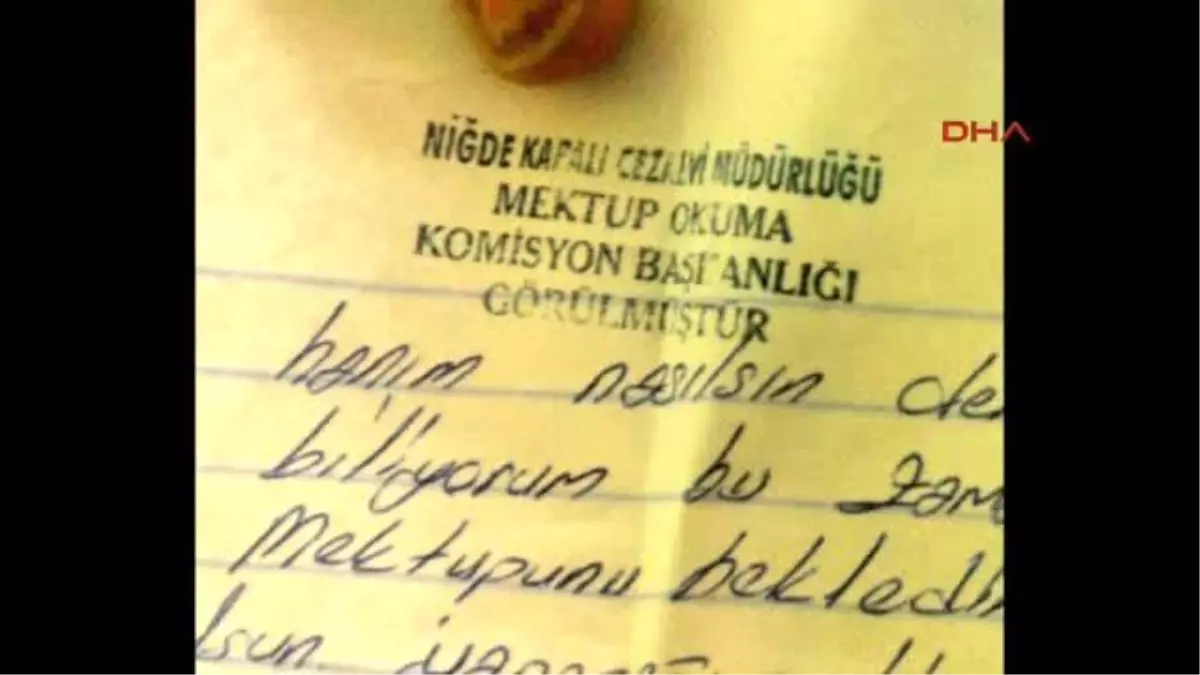 DHA
NİĞDE KAPALI CEZAEVİ MÜDÜRLÜĞÜ
MEKTUP OKUMA
KOMİSYON BAŞKANLIĞI
GÖRÜLMÜŞTÜR
hanım nasılsın
biliyorum bu
Mektupunu